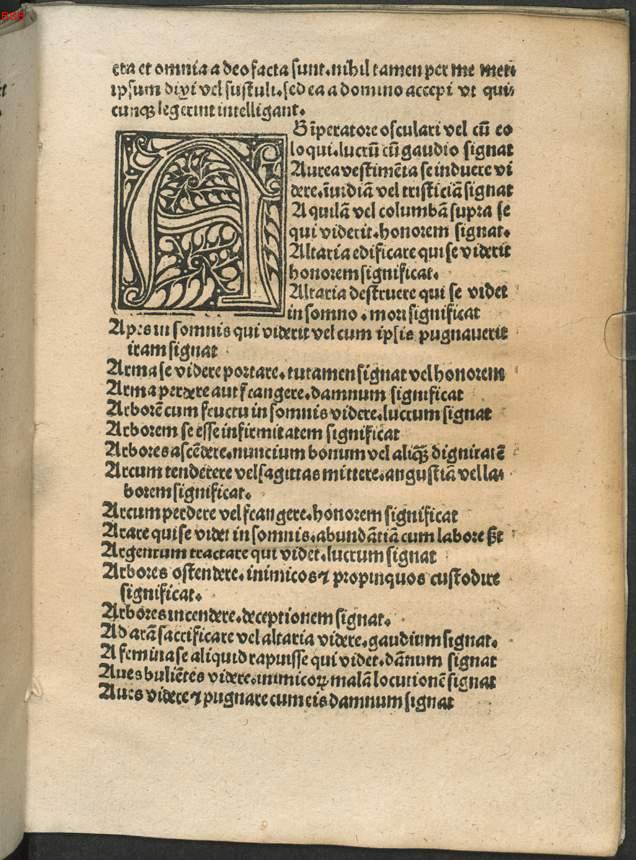 eta et omnia a deo facta sunt. nihil tamen per me meti
ipsum dixi vel sustuli. sed ea a domino accepi vt qui
cunqꝫ legerint intelligant.
AB īperatore osculari vel cū eo
loqui. lucrū cū gaudio signat
Aurea vestimēta se induere vi
dere. īuidiā vel tristiciā signat
Aquilā vel columbā supra se
qui viderit. honorem signat.
Altaria edificare qui se viderit
honorem significat.
Altaria destruere qui se videt
in somno. mori significat
Apes in somnis qui viderit vel cum ipsis pugnauerit
iram signat
Arma se videre portare. tutamen signat vel honorem
Arma perdere aut frangere. damnum significat
Arborē cum fructu in somnis videre. lucrum signat
Arborem se esse infirmitatem significat
Arbores ascēdere. nuncium bonum vel aliqꝫ dignitatē
Arcum tenderere vel sagittas mittere. angustiā vel la-
borem significat.
Arcum perdere vel frangere. honorem significat
Arare qui se videt in somnis. abundātiā cum labore
Argentum tractare qui videt. lucrum signat
Arbores ostendere. inimicos ⁊ propinquos custodire
significat.
Arbores incendere. deceptionem signat.
Ad arā sacrificare vel altaria videre. gaudium signat.
A femina se aliquid rapuisse qui videt. dānum signat
Aues buliētes videre. inimicoꝝ malā locutionē signat
Aues videre ⁊ pugnare cum eis damnum signat